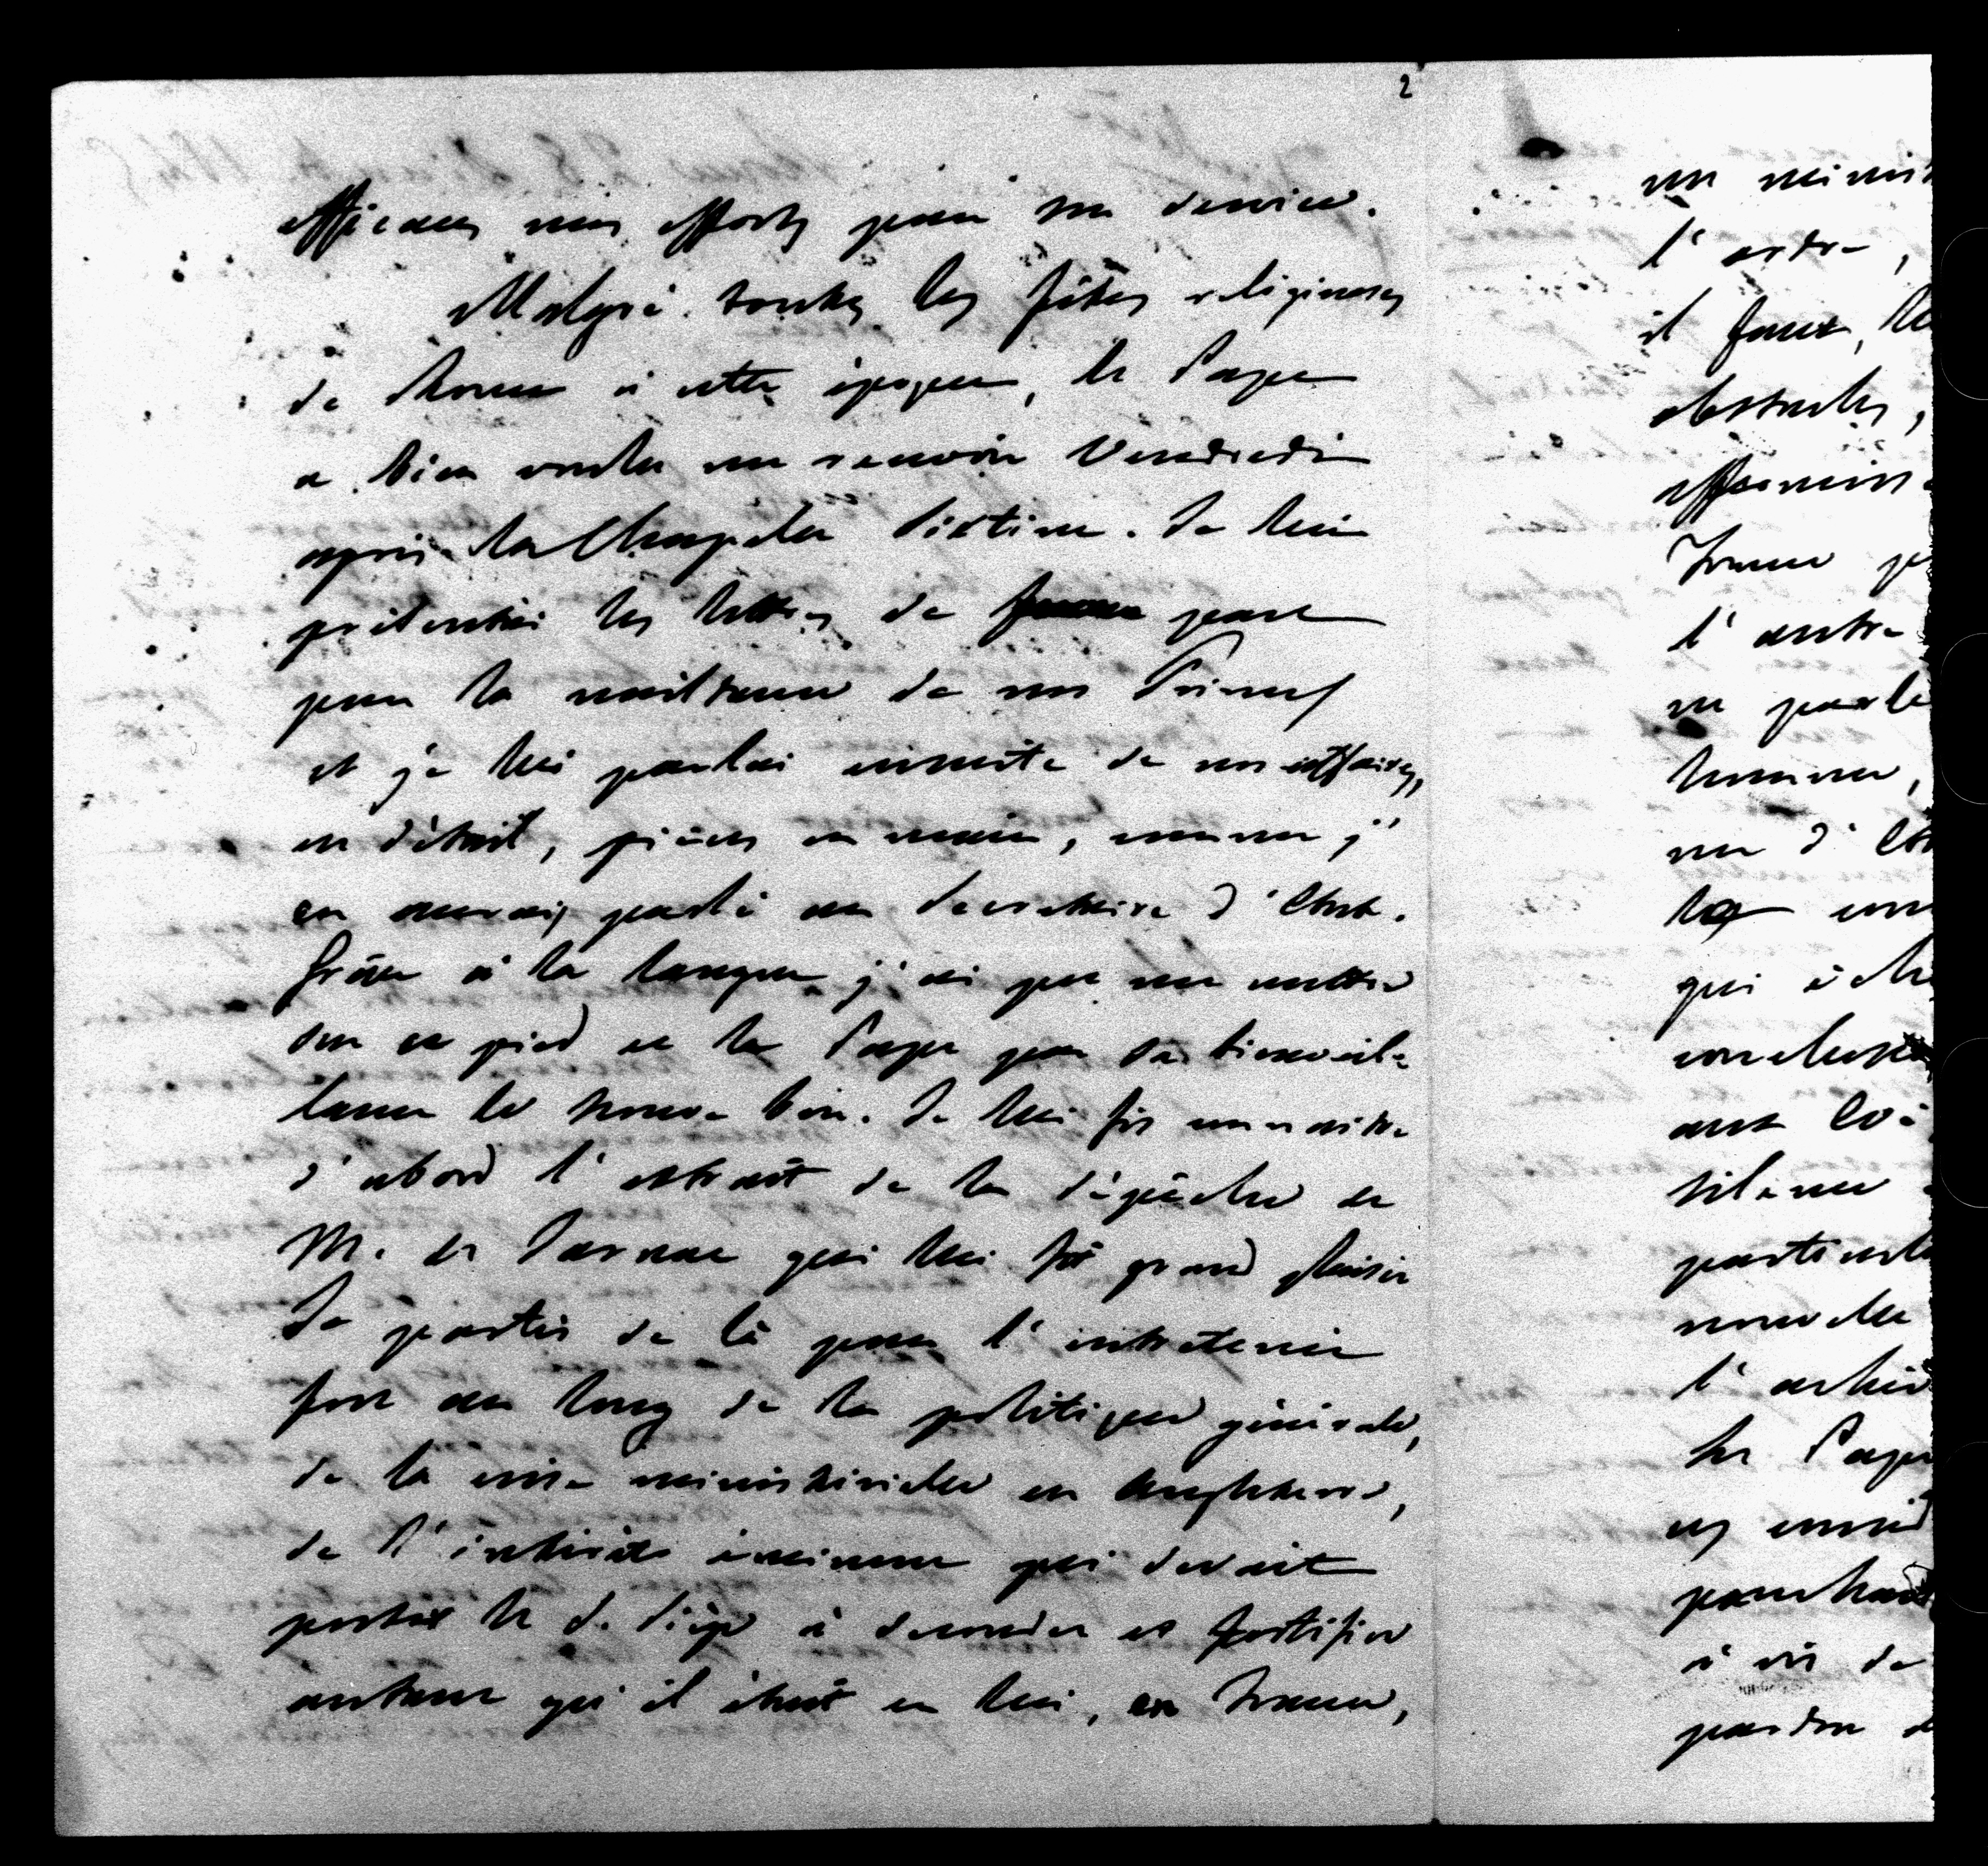 2
efficaces mes efforts pour son service.
Malgré toutes les fêtes religieuses
de Rome à cette époque, le Pape
a bien voulu me recevoir Vendredi
après la Chapelle Sixtine. Je lui
présentai les lettres de part
pour la naissance de nos Princes
et je lui parlai ensuite de nos affaires,
en détail, pièces en main, comme j'
en aurais parlé au Secrétaire d'Etat.
Grâce à la langue j'ai pu me mettre
sur ce pied et le Pape par sa bienveil-
lance le trouve bon. Je lui fis connaitre
d'abord l'extrait de la dépêche de
M. de qui lui fit grand plaisir
Je partis de là pour l'entretenir
fort au long de la politique générale,
de la crise ministérielle en Angleterre,
de l'intérêt éminent qui devait
porter le S. Siège à seconder et fortifier
autant qu'il était en lui, en France,
un minist
l'ordre,
il faut, le
obstacles,
affermiss
France p
l'autre
ne parle
homme,
me d'Et
la con
qui éch
conclus
aux
silence
particul
nouvelle
l'
le Pape
ces consid
penchant
à vis de
pardon d